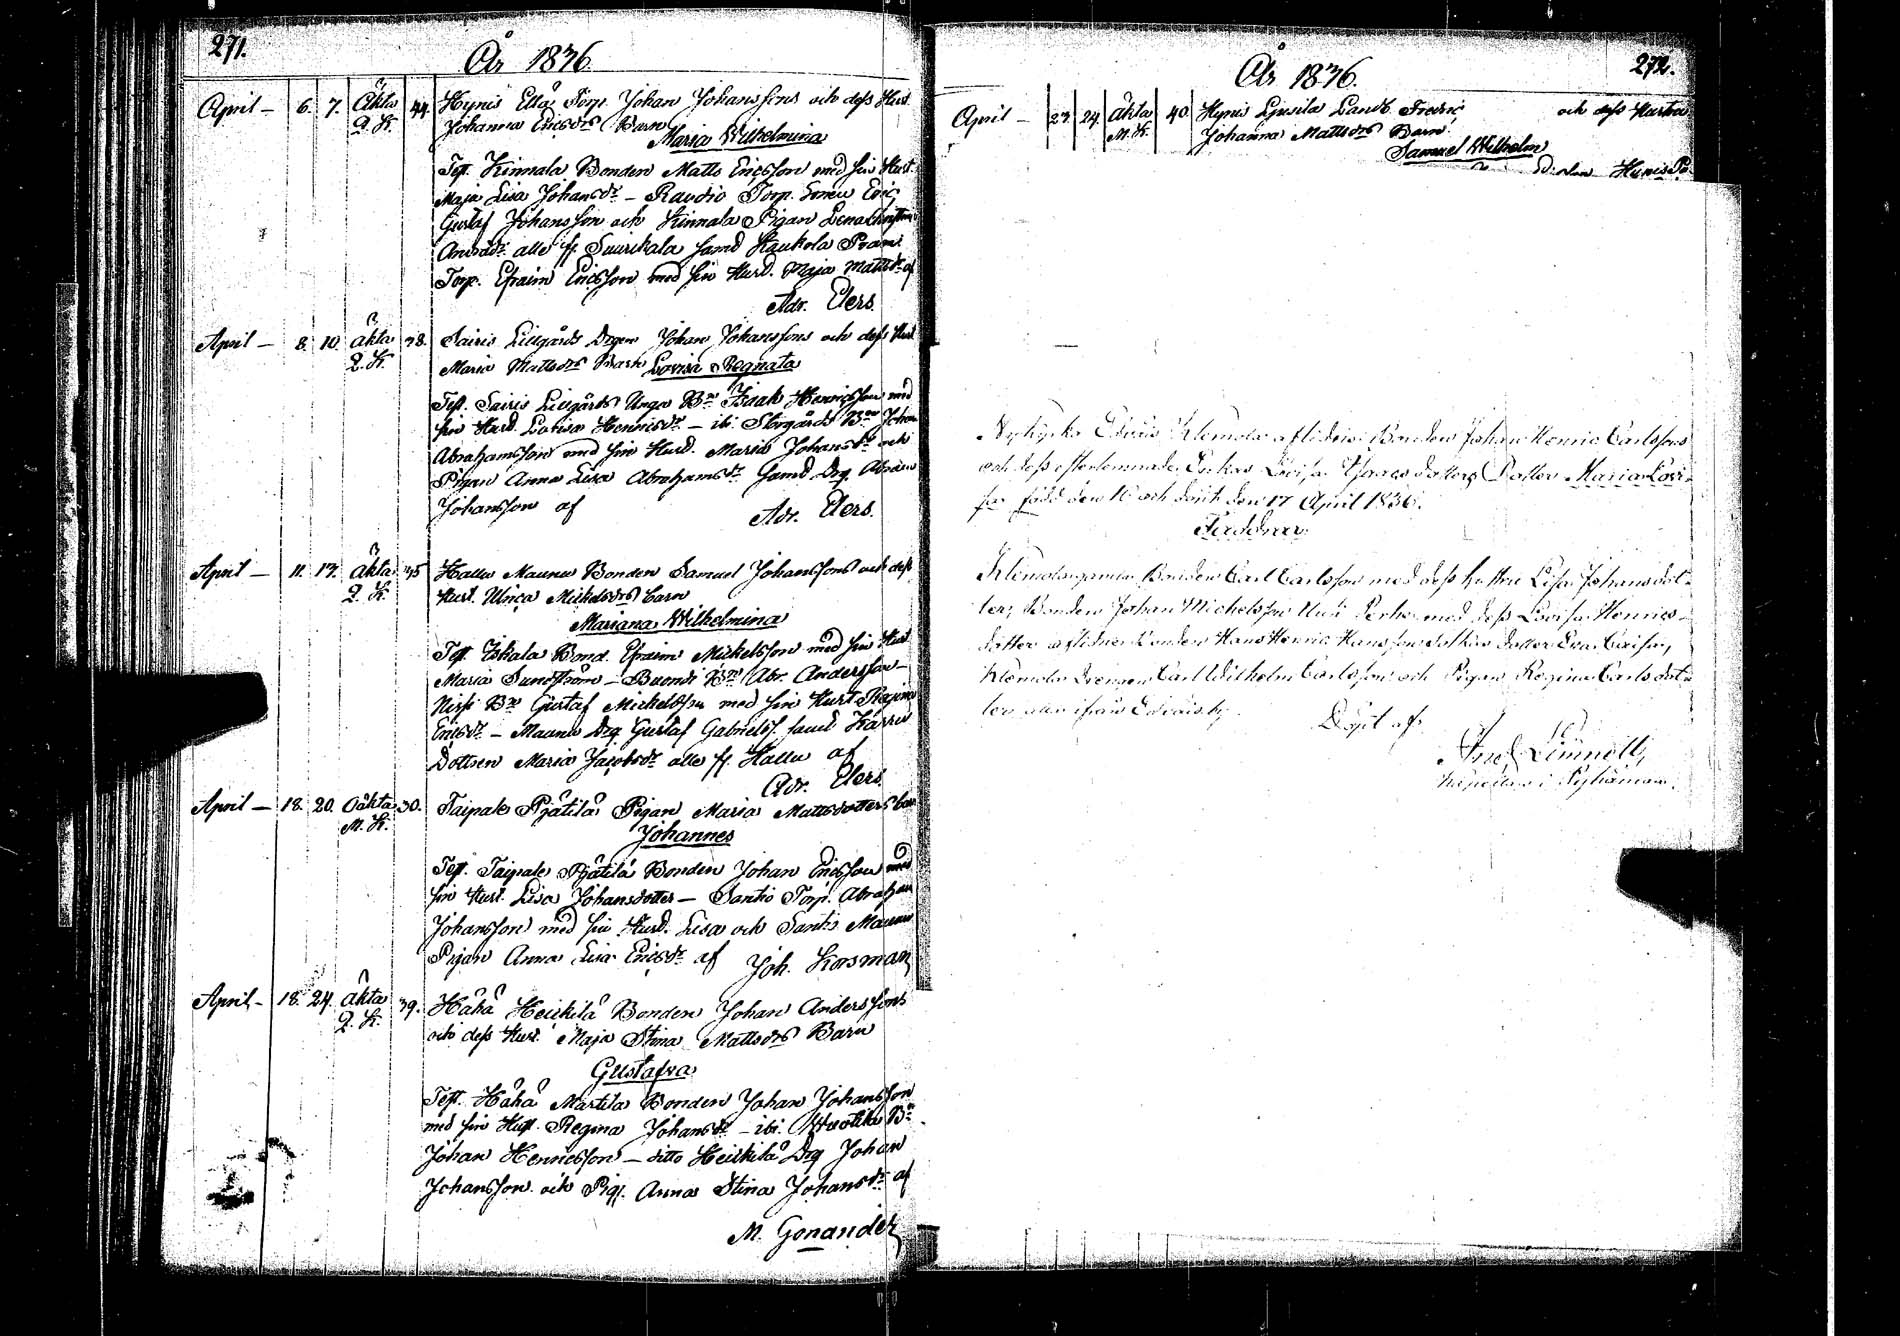 271.
År 1836.
April — 6. 7. Äkta 44. Hynis Ellä Torp. Johan Johanssons och dess Hust.
Q. K. Johanna Ericsdrs Barn
Maria Wilhelmina
Test. Kinnala Bonden Matts Ericsson med sin Hust.
Maja Lisa Johansdr — Raudio Torp. Sonen Eric
Gustaf Johansson och Kinnala Pigan Lena
alle fr. Suurikala samt Haukola
Torp. Efraim Ericsson med sin Hust. Maja Mattsdr af
Adr. Elers.
April — 8. 10. Äkta 38. Sairis Lillgårds Drgen Johan Johanssons och dess Hust.
Q. K. Maria Mattsdrs Barn Lovisa Regnata
Test. Sairis Lillgårds Unga Bn Isaak Henricsson med
sin Hust. Lovisa Henricsdr — ib. Storgårds Bn Johan
Abrahamsson med sin Hust. Maria Johansdr och
Pigan Anna Lisa Abrahamsdr samt Drg. Abram
Johansson af
Adr. Elers.
April — 11. 17. Äkta 35 Hallu Maunu Bonden Samuel Johanssons och dess
Q. K. Hust. Ulrica Mickelsdrs barn
Mariana Wilhelmina
Test. Eskala Bond. Efraim Mickelsson med sin Hust
Maria Sundström — Buondi Bn Abr. Andersson —
Nissi Bn Gustaf Mickelsson med sin Hust. Regina
Ericsdr — Maunu Drg Gustaf Gabrielss. samt
Dottren Maria Jacobsdr alle fr. Hallu af
Adr. Elers.
April — 18. 20. Oäkta 30. Taipale Pjätilä Pigan Maria Mattsdotters barn
M. K. Johannes
Test. Taipale Pjätilä Bonden Johan Ericsson med
sin Hust. Lisa Johansdotter — Santio Torp. Abraham
Johansson med sin Hust. Lisa och Santio Maunu
Pigan Anna Lisa Ericsdr af Joh. Korsman
April — 18. 24. Äkta 39. Hähä Heickilä Bonden Johan Anderssons
Q. K. och dess Hust. Maja Stina Mattsdrs Barn
Gustafva
Test. Hähä Martila Bonden Johan Johansson
med sin Hust. Regina Johansdr — ib. Bn
Johan Henricsson — ditto Heickilä Drg Johan
Johansson och Pig. Anna Stina Johansdr af
M. Gonander
År 1836.
272.
April — 23. 24. Äkta 40. Hynis Lansb. Fredric och dess Hustru
M. K. Johanna Mattsdrs Barn
Samuel Wilhelm
Hynis
Nykyrko Edväis Klemola aflidne Bonden Johan Henric Carlssons
och dess efterlemnade Enkas Lovisa Dotter Maria Lovi-
sa född den 16 och döpt den 17 April 1836.
Faddrar:
Bonden Carl Carlsson med dess hustru Lisa Johansdot-
ter, Bonden Johan Michelsson med dess Lovisa Henrics-
dotter aflidne Bonden Hans Henric Hansson dotter Eva
Klemola Drengen Carl Wilhelm Carlsson och Pigan Regina Carlsdot-
ter alla ifrån Edväis by.
Döpt af
Linnell,
Kapellan i Pyhämaa.